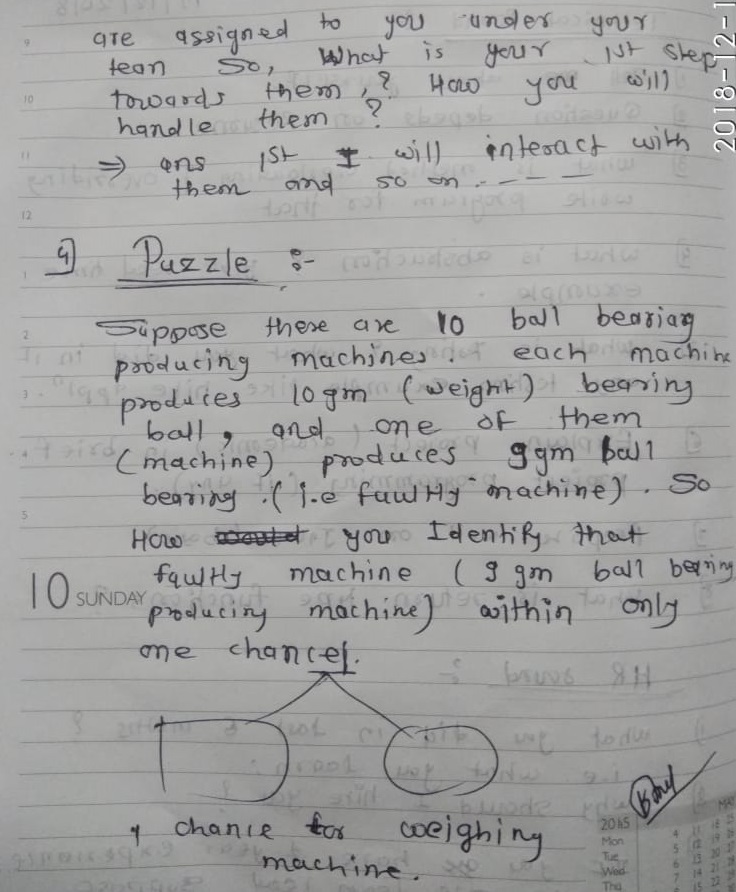 are assigned to you under your
team so, What is your 1st step
towards them,? How you will
handle them?
⇒ ans 1st I will interact with
them and so on. - - -
4) Puzzle :-
Suppose there are 10 ball bearing
producing machines. each machine
produces 10gm (weight) bearing
ball, and one of them
(machine) produces 9gm ball
bearing.(i.e faulty machine). So
How you Identify that
faulty machine (9 gm ball bearing
producing machine) within only
one chance.
1 chance for weighing
machine.
2018-12-1
9
10
11
12
1
2
3
4
5
10 SUNDAY
2015
Mon
Tue
Wed
Thu